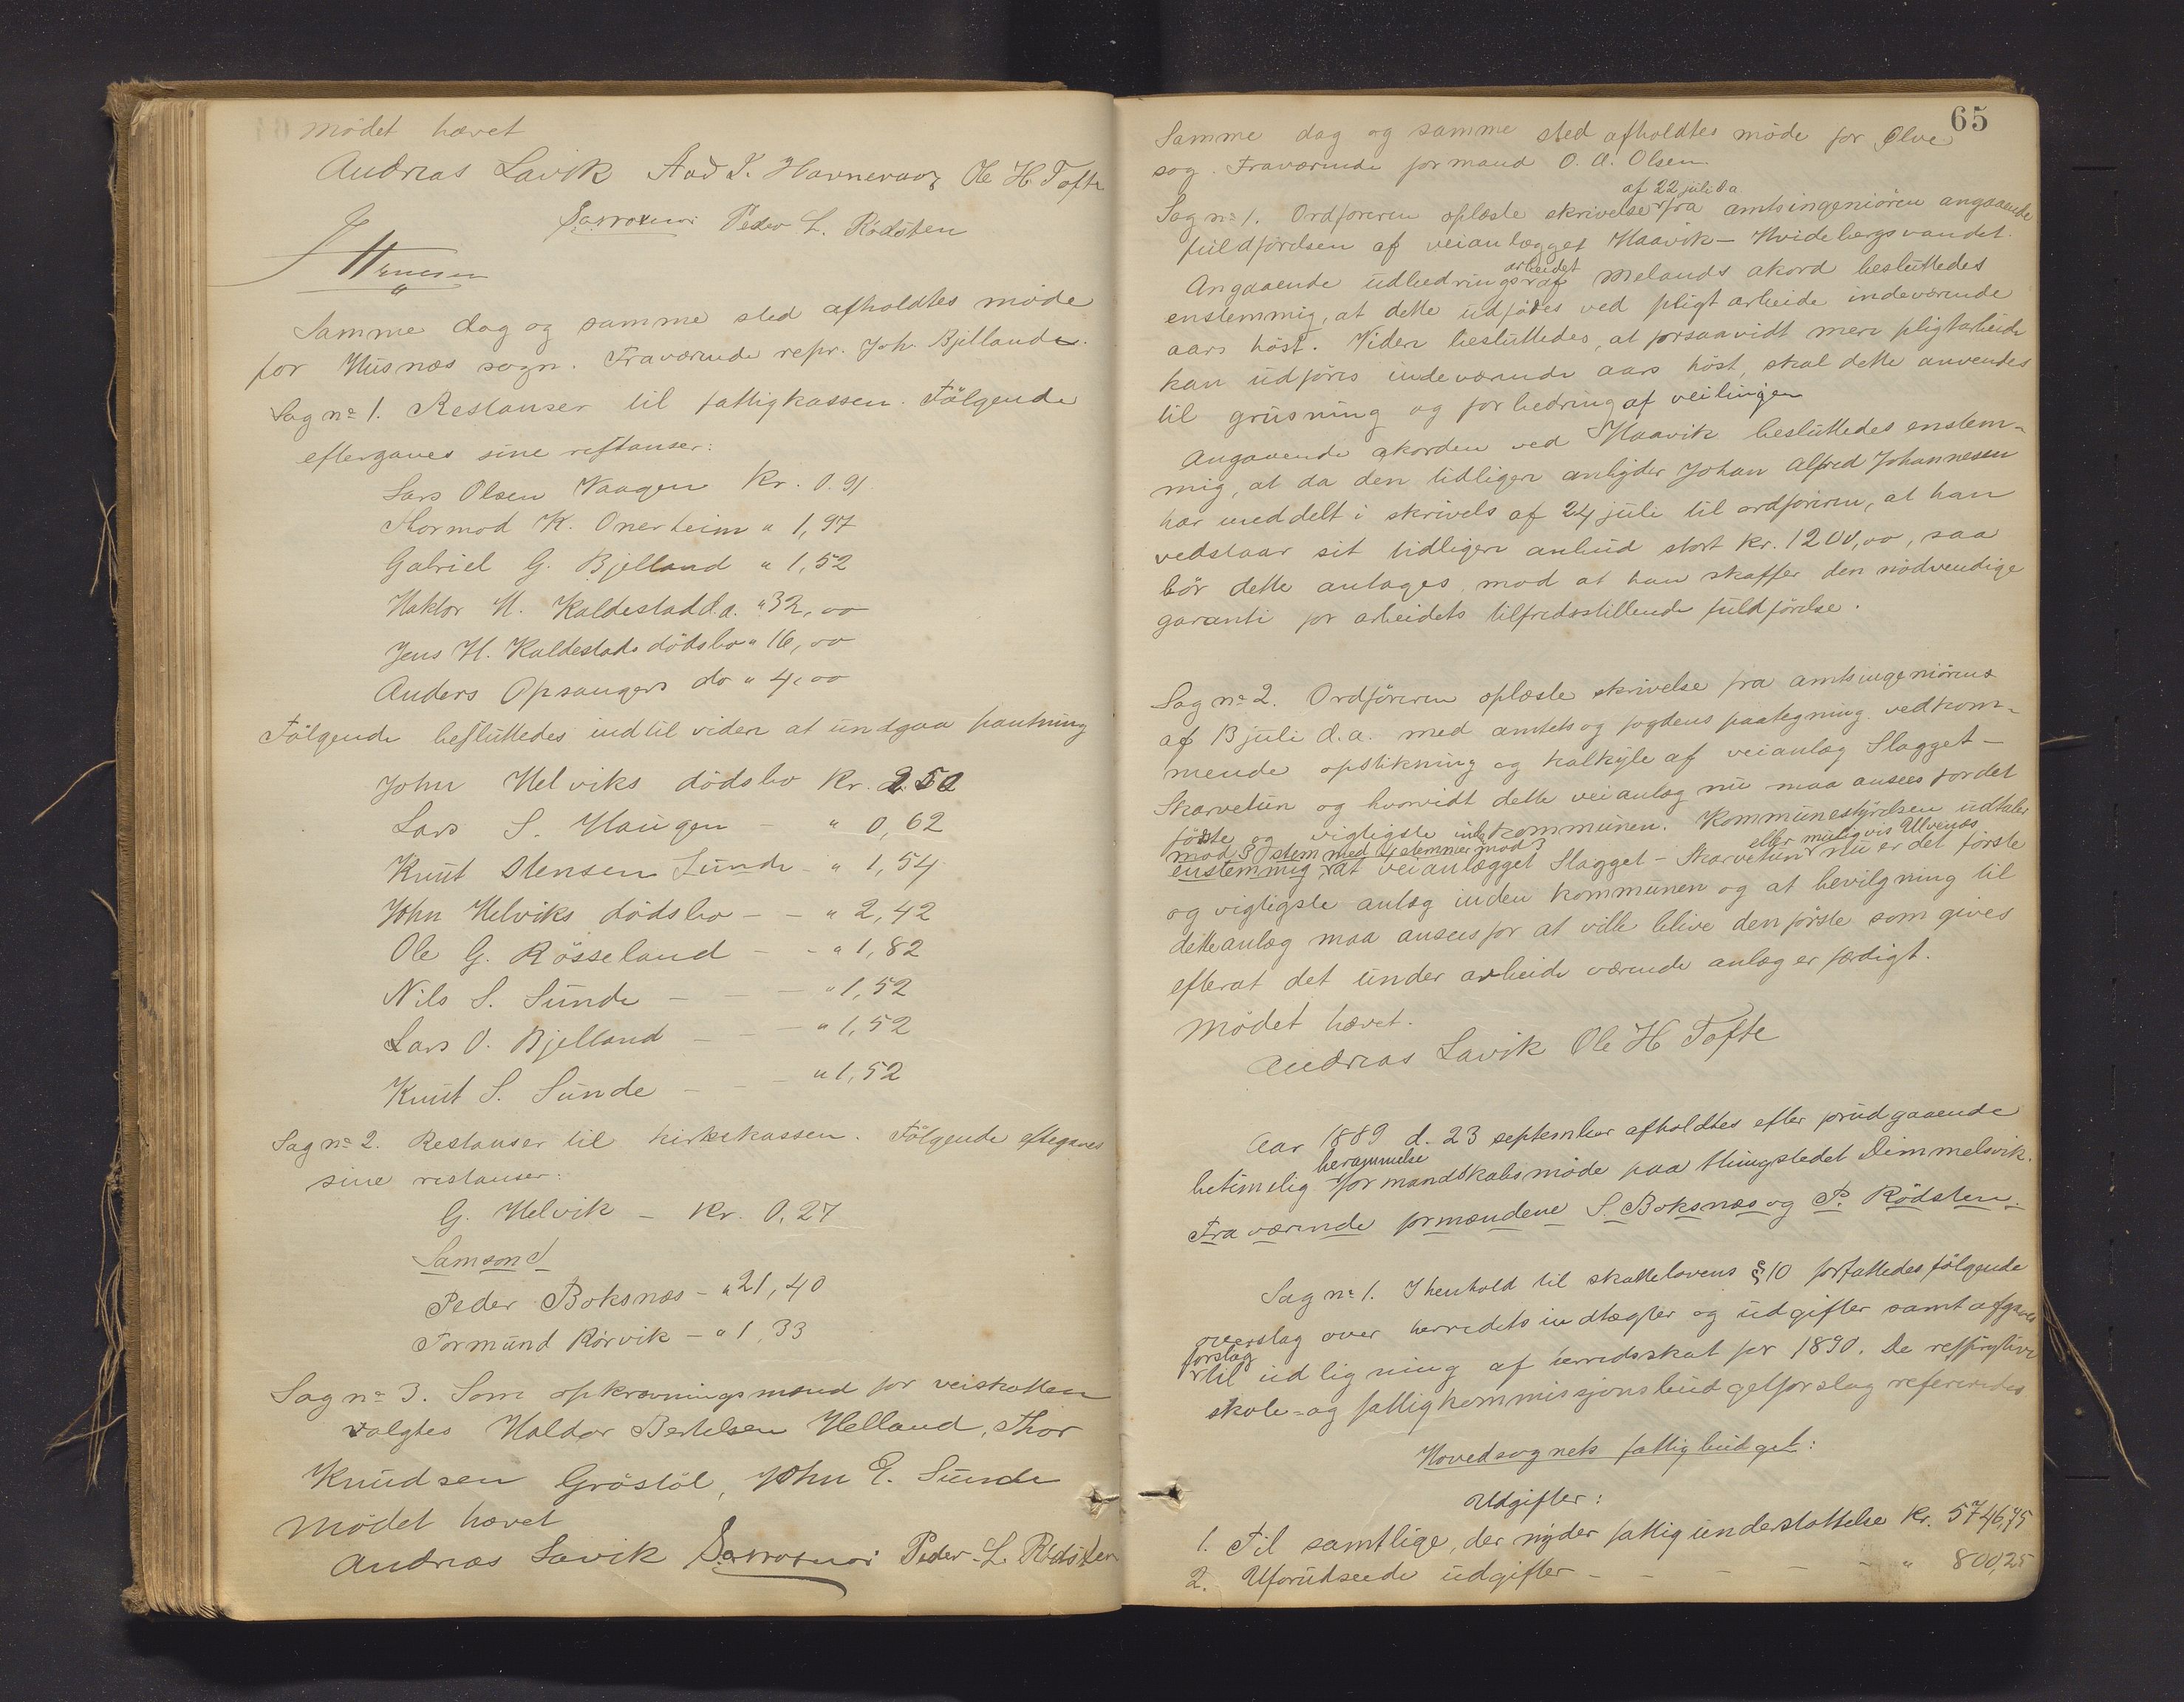 mödet hævet
Andreas Lavik Aad T. Havnevaag Ole H. Tofte
Peder L. Rödsten
Samme dag og samme sted afholdtes møde
for Husnæs sogn. Fraværende repr. Joh. Bjelland.
Sag nº 1. Restanser til fattigkassen. Fölgende
eftergaves sine restanser:
Lars Olsen Vaagen Kr. 0.91
Thormod K. Onerheim " 1,97
Gabriel G. Bjelland " 1,52
Haktor H. Kaldestad d.a. " 32,00
Jens H. Kaldestads dödsbo " 16,00
Anders Opsangers do " 4,00
Fölgende besluttedes indtil videre at undgaa pantning
John Helviks dödsbo Kr. 2.50
Lars S. Haugen - " 0,62
Knut Stensen Sunde - " 1,54
John Helviks dödsbo - - " 2,42
Ole G. Rösseland - - " 1,82
Nils S. Sunde - - - " 1,52
Lars O. Bjelland - - " 1,52
Knut S. Sunde - - - " 1,52
Sag nº 2. Restanser til kirkekassen. Fölgende eftegaves
sine restanser:
G. Helvik - Kr. 0,27
Samson
Peder Boksnæs - " 21,40
Tormund Rørvik - " 1,33
Sag nº 3. Som opkrævningsmænd for veiskatten
valgtes Haldor Bertelsen Helland, Thor
Knudsen Gröstöl, John E. Sunde
Mödet hævet
Andreas Lavik Peder L. Rödsten
65
Samme dag og samme sted afholdtes möde for Ølve
sog. Fraværende formand O. A. Olsen.
af 22 juli d a
Sag nº 1. Ordføreren oplæste skrivelse fra amtsingeniören angaaende
fuldförelsen af veianlægget Haavik - Hvidebergsvandet.
arbeidet
Angaaende udbedrings af Melands akord besluttedes
enstemmig, at dette udføres ved pligtarbeide indeværende
aars höst. Videre besluttedes, at forsaavidt mere pligtarbeide
kan udføres indeværende aars höst, skal dette anvendes
til grusning og forbedring af veilinjen
Angaaende akorden ved Haavik besluttedes enstem-
mig, at da den tidligere anbyder Johan Alfred Johannesen
har meddelt i skrivels af 24 juli til ordføreren, at han
vedstaar sit tidligere anbud stort kr. 1200,00, saa
bör dette antages mod at han skaffer den nödvendige
garanti for arbeidets tilfredsstillende fuldförelse.
Sag nº 2. Ordføreren oplæste skrivelse fra amtsingeniørens
af 13 juli d.a. med amtets og fogdens paategning vedkom-
mende opstikning og kalkyle af veianlæg Slagget -
Skarvetun og hvorvidt dette veianlæg nu maa ansees for det
første og vigtigste inde kommunen. Kommunestyrelsen udtaler
mod 3 stem med 4 stemmer mod 3 eller muligvis Ulvenæs
enstemmig at veianlægget Slagget - Skarvetun nu er det første
og vigtigste anlæg inden kommunen og at bevilgning til
dette anlæg maa ansees for at ville blive den første som gives
efterat det under arbeide værende anlæg er færdigt.
Mödet hævet.
Andreas Lavik Ole H Tofte
Aar 1889 d. 23 september afholdtes efter forudgaaende
berammelse
betimelig formandskabsmöde paa thingstedet Dimmelsvik.
Fraværende formændene S. Boksnæs og P. Rödsten.
Sag nº 1. I henhold til skattelovens § 10 forfattedes fölgende
overslag over herredets indtægter og udgifter samt afgaves
forslag
til udligning af herredsskat for 1890. De respektive
skole- og fattigkommissjons budgetforslag refereredes
Hovedsognets fattigbudget:
Udgifter:
1. Til samtlige, der nyder fattigunderstøttelse Kr. 5746,75
2. Uforudseede udgifter - - - - " 800,25